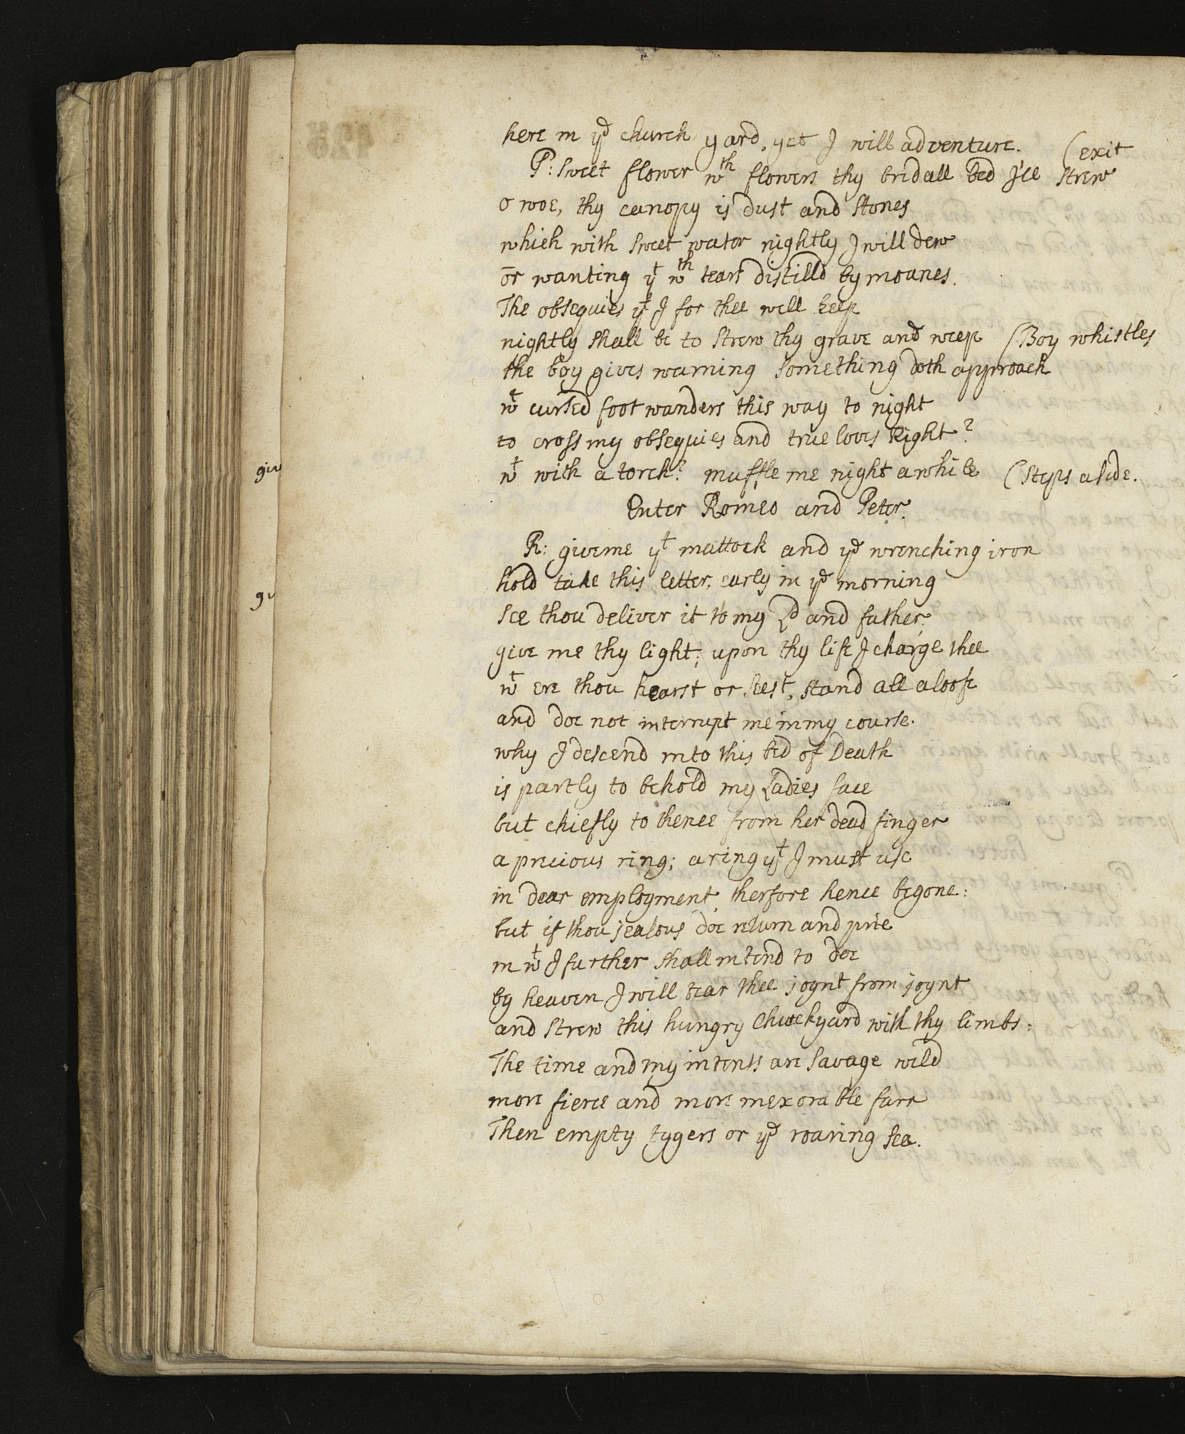 here in yͤ church yard, yet I will adventure. (exit
P: Sweet flower wth flowers thy bridall bed I'le strew
o woe, thy canopy is dust and stones
which with sweet water nightly I will dew
or wanting yt wth tears distilld by moanes.
The obsequies yt I for thee will keep
nightly shall be to strew thy grave and weep (Boy whistles
the boy gives warning something doth approach
wt cursed foot wanders this way to night
to cross my obsequies and true loves Right?
wt with a torch? muffle me night a while (steps aside.
Enter Romeo and Peter.
R: give me yt mattock and yͤ wrenching iron
hold take this letter, early in yͤ morning
See thou deliver it to my Ld and father.
give me thy light; upon thy life I charge thee
wt ere thou hearst or seest, stand all aloof
and doe not interrupt me in my course.
why I descend into this bed of Death
is partly to behold my Ladies face
but chiefly to thence from her dead finger
a precious ring; a ring yt I must use
in dear employment, therfore hence begone:
but if thou jealous doe return and prie
in wt I further shall intend to doe
by heaven I will tear thee joynt from joynt
and strew this hungry Churchyard with thy limbs:
The time and my intents are savage wild
more fierce and more inexorable farr
Then empty tygers or yͤ roaring sea.